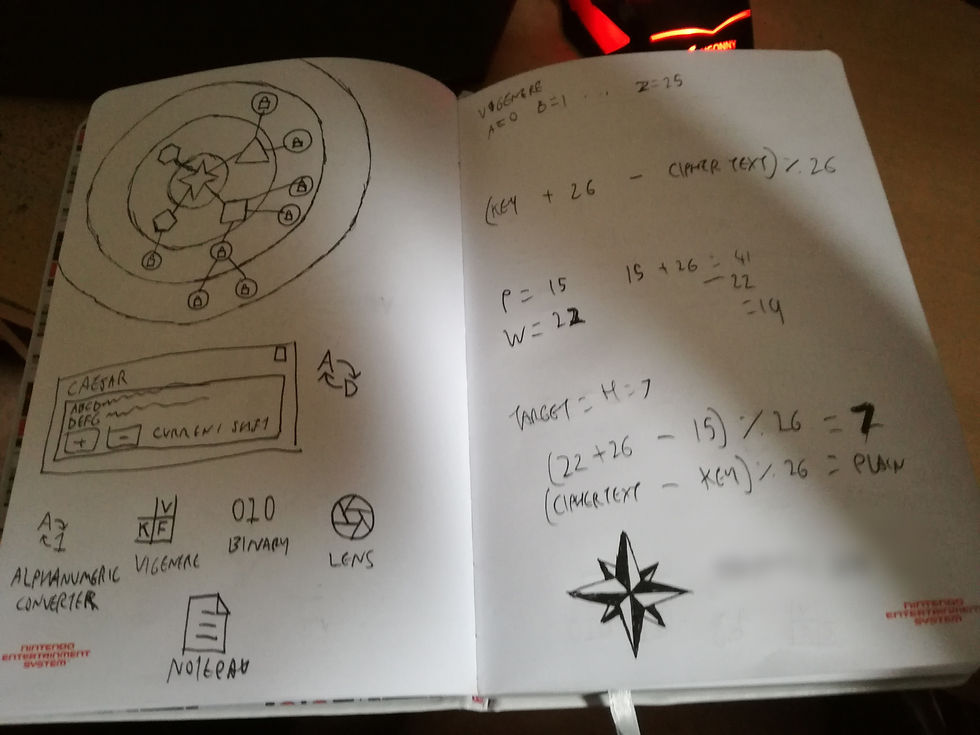 CAESAR
ABCD
DEFG
+ - CURRENT SHIFT
A
D
A
1
ALPHANUMERIC
CONVERTER
V
K F
VIGENERE
010
BINARY
LENS
NOTEPAD
NINTENDO
ENTERTAINMENT
SYSTEM
VIGENERE
A=0 B=1 ... Z=25
(KEY + 26 - CIPHERTEXT) % 26
P = 15
W = 22
15 + 26 = 41
- 22
= 19
TARGET = H = 7
(22 + 26 - 15) % 26 = 7
(CIPHERTEXT - KEY) % 26 = PLAIN
NINTENDO
ENTERTAINMENT
SYSTEM